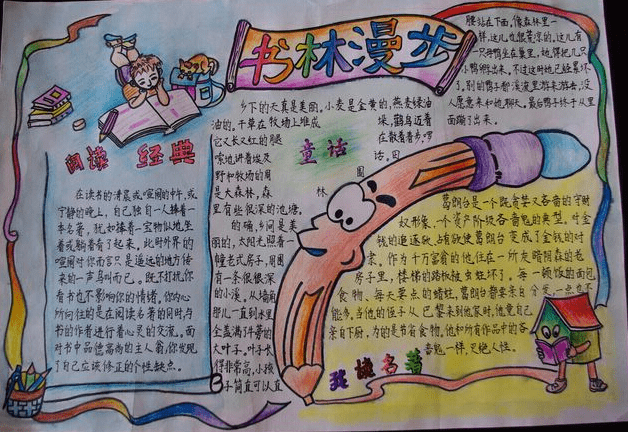 书林漫步
阅读 经典
在读书的清晨或喧闹的中午,或
宁静的晚上,自己独自一人捧着一
本名著,犹如捧着一宝物似地,坐
着或躺着看了起来,此时外界的
喧闹对你而言只是遥远的地方传
来的一声鸟叫而已。既不打扰你
看书也不影响你的情绪,你内心
所向往的是在阅读名著的同时与
书的作者进行着心灵的交流。面
对书中品德高尚的主人翁,你发现
了自己应该修正的个性缺点。
童话
乡下的天真是美丽。小麦是金黄的,燕麦绿油
油的。干草在牧场上堆成
垛,鹳鸟迈着
它又长又红的腿
在散着步,啰
嗦地讲着埃及
话。田
野和牧场的周
围
是大森林,森
林
里有些很深的池塘。
的确,乡间是美
丽的,太阳光照着一
幢老式房子,周围
有一条很深
的小溪。从墙角
那儿一直到水里
全盖满牛蒡的
大叶子。叶子长
得非常高,小孩
子简直可以直
腰站在下面,像森林里一
样,这儿也很荒凉的。这儿有
一只母鸭坐在巢里,她得把几只
小鸭孵出来。不过这时她已经累坏
了。别的鸭子都溪流里游来游去,没
人愿意来和她聊天。最后鸭子终于从里
面蹦了出来。
葛朗台是一个既贪婪又吝啬的守财
奴形象,一个资产阶级吝啬鬼的典型。对金
钱的追逐欲,占有欲使葛朗台变成了金钱的对
象,作为千万富翁的他,住在一所灰暗阴森的老
房子里,楼梯的踏板被虫蛀坏了。每一顿饭的面包
食物、每天要点的蜡蛀,葛朗台都要亲自分发一点也不
能多,当他的侄子从巴黎来到他家时,他竟自己
亲自下厨,为的是节省食物,他和所有作品中的吝
啬鬼一样,灭绝人性。
我读名著